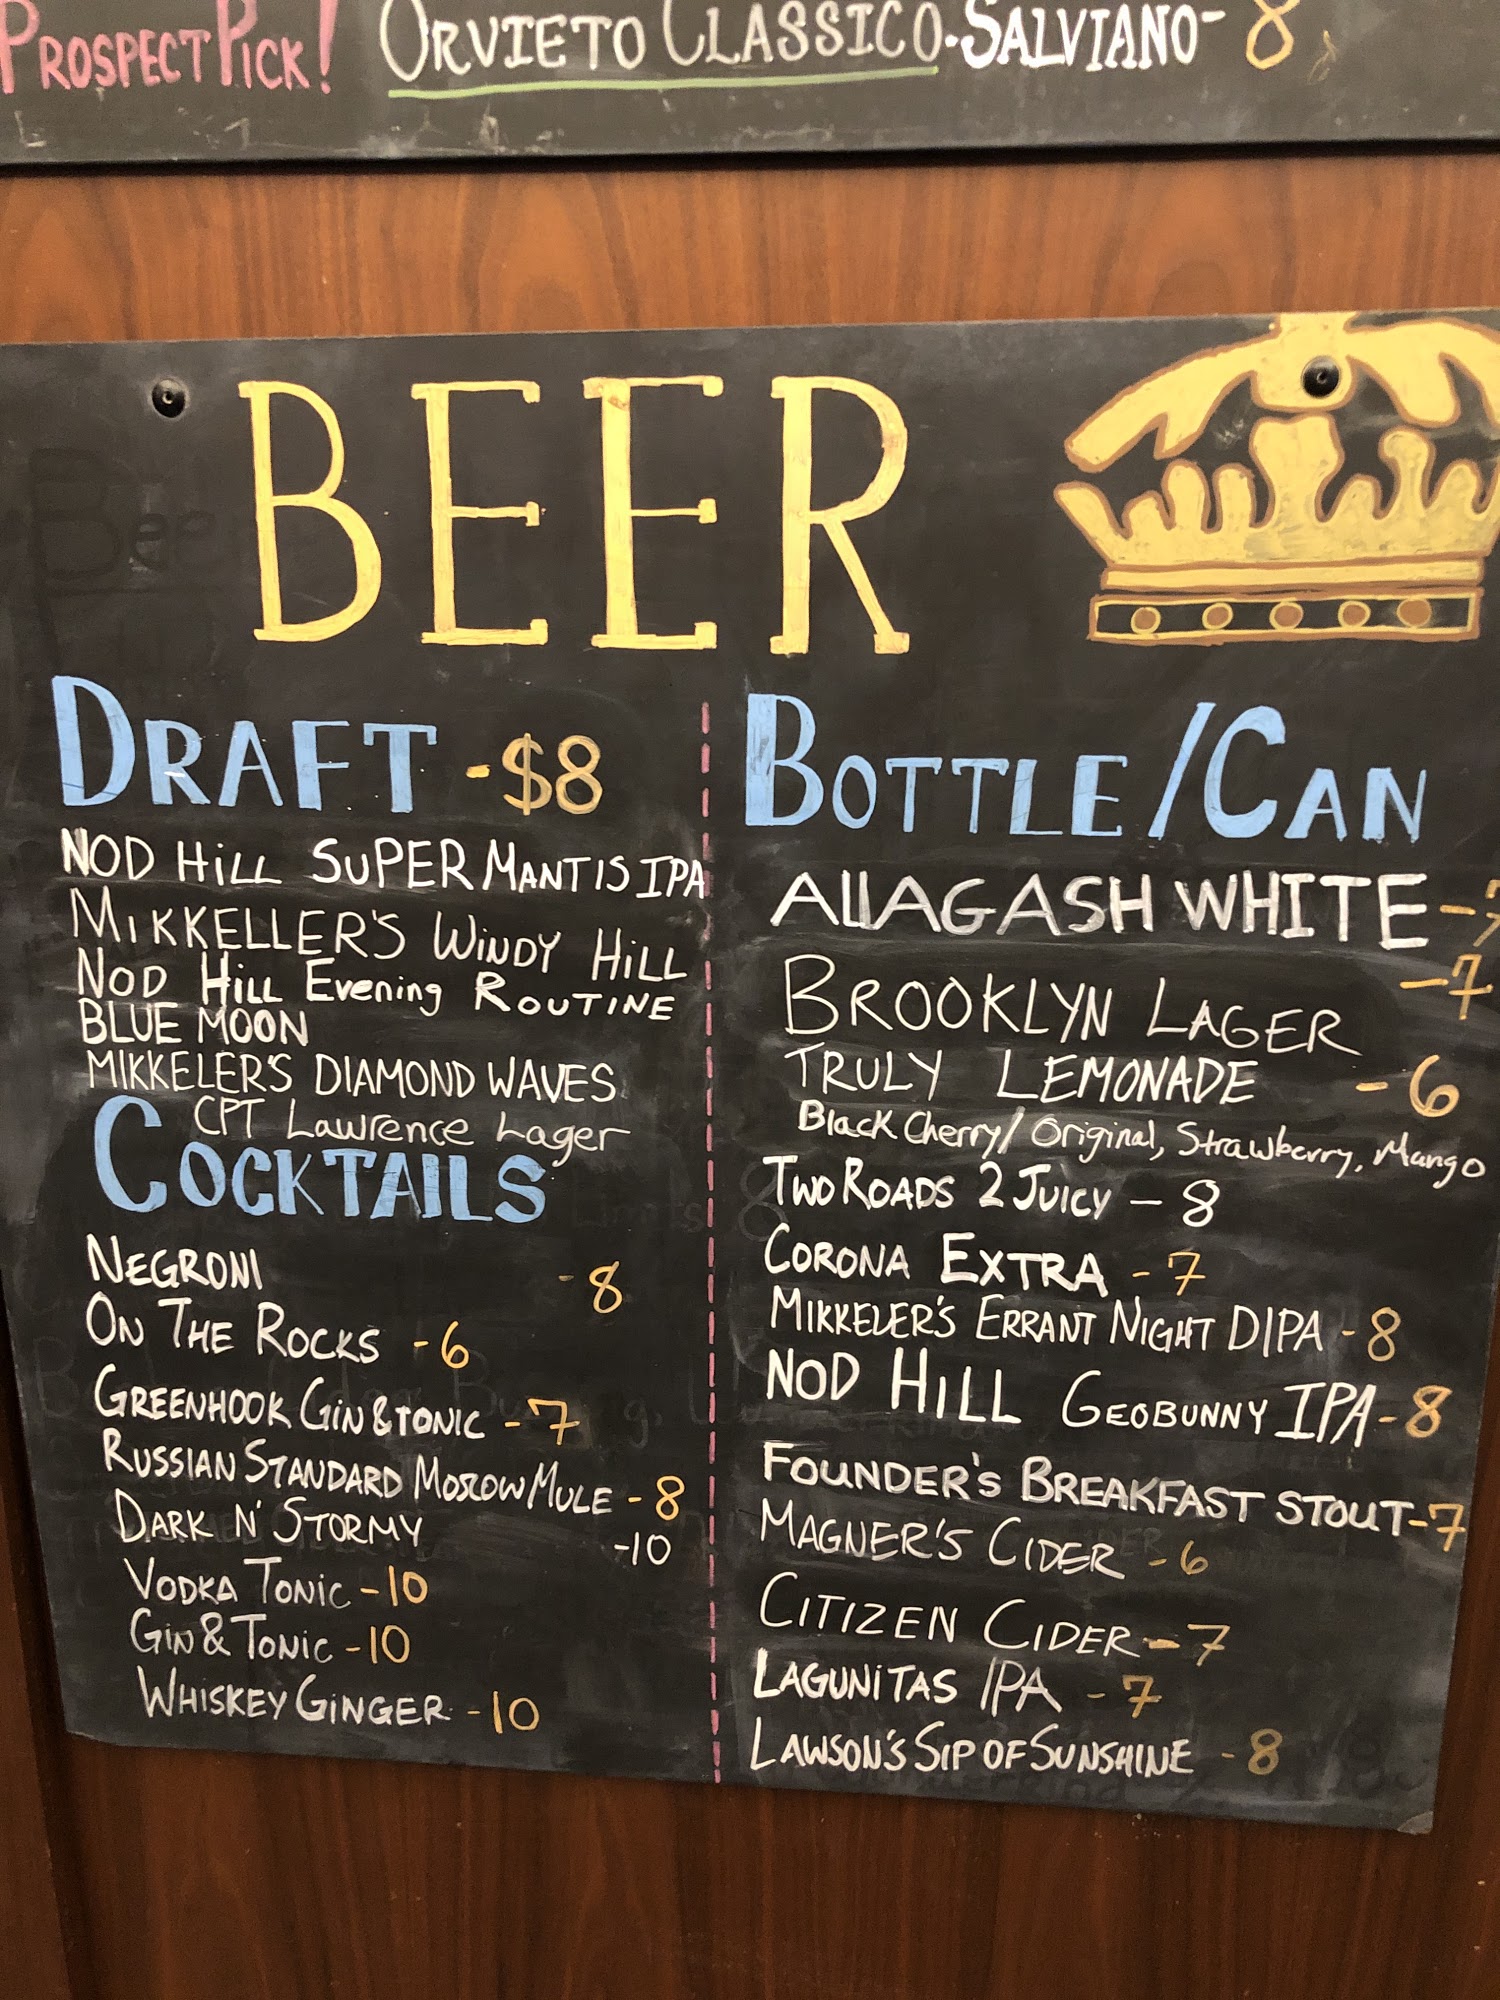 PROSPECT PICK! ORVIETO CLASSICO·SALVIANO- 8
BEER
DRAFT -$8
NOD HILL SUPER MANTIS IPA
MIKKELLER'S WINDY HILL
NOD HILL Evening ROUTINE
BLUE MOON
MIKKELER'S DIAMOND WAVES
CPT Lawrence Lager
COCKTAILS
NEGRONI -8
ON THE ROCKS -6
GREENHOOK GIN & TONIC -7
RUSSIAN STANDARD MOSCOW MULE -8
DARK N' STORMY -10
VODKA TONIC -10
GIN & TONIC -10
WHISKEY GINGER -10
BOTTLE/CAN
ALLAGASH WHITE -7
BROOKLYN LAGER -7
TRULY LEMONADE -6
Black Cherry/Original, Strawberry, Mango
TWO ROADS 2 JUICY - 8
CORONA EXTRA -7
MIKKELER'S ERRANT NIGHT DIPA -8
NOD HILL GEOBUNNY IPA -8
FOUNDER'S BREAKFAST STOUT -7
MAGNER'S CIDER -6
CITIZEN CIDER -7
LAGUNITAS IPA -7
LAWSON'S SIP OF SUNSHINE -8